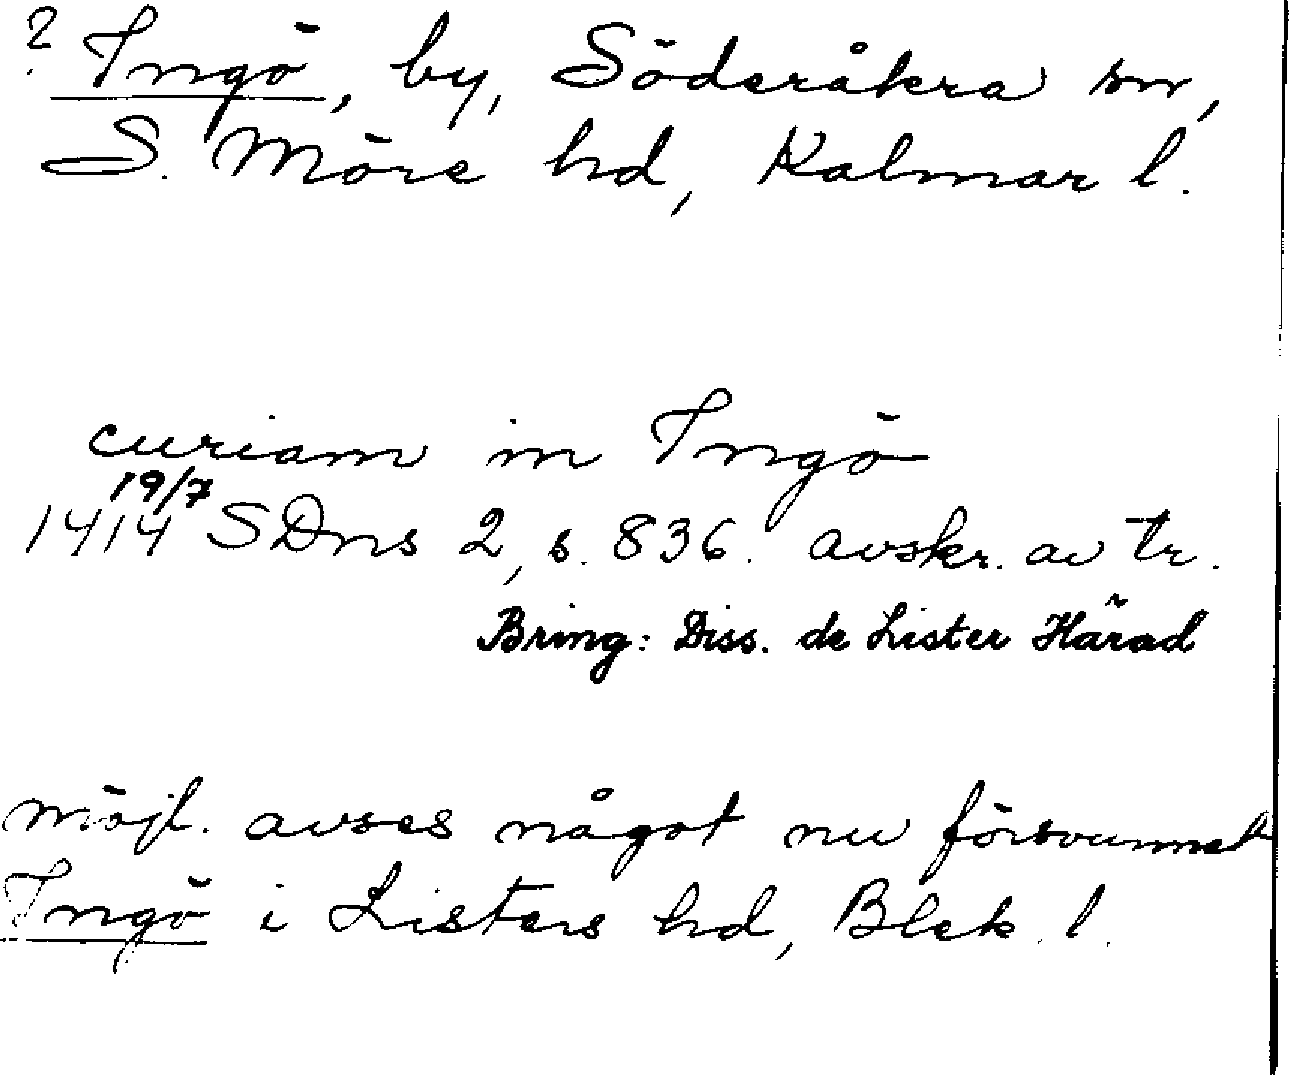 ? Ingö, by, Söderåkra sn,
S. Möre hd, Kalmar l.
curiam in Ingö
19/7
1414 SDns 2, s. 836. avskr. av tr.
Bring: Diss. de Lister Härad
möjl. avses något nu försvunnet
Ingö i Listers hd, Blek. l.